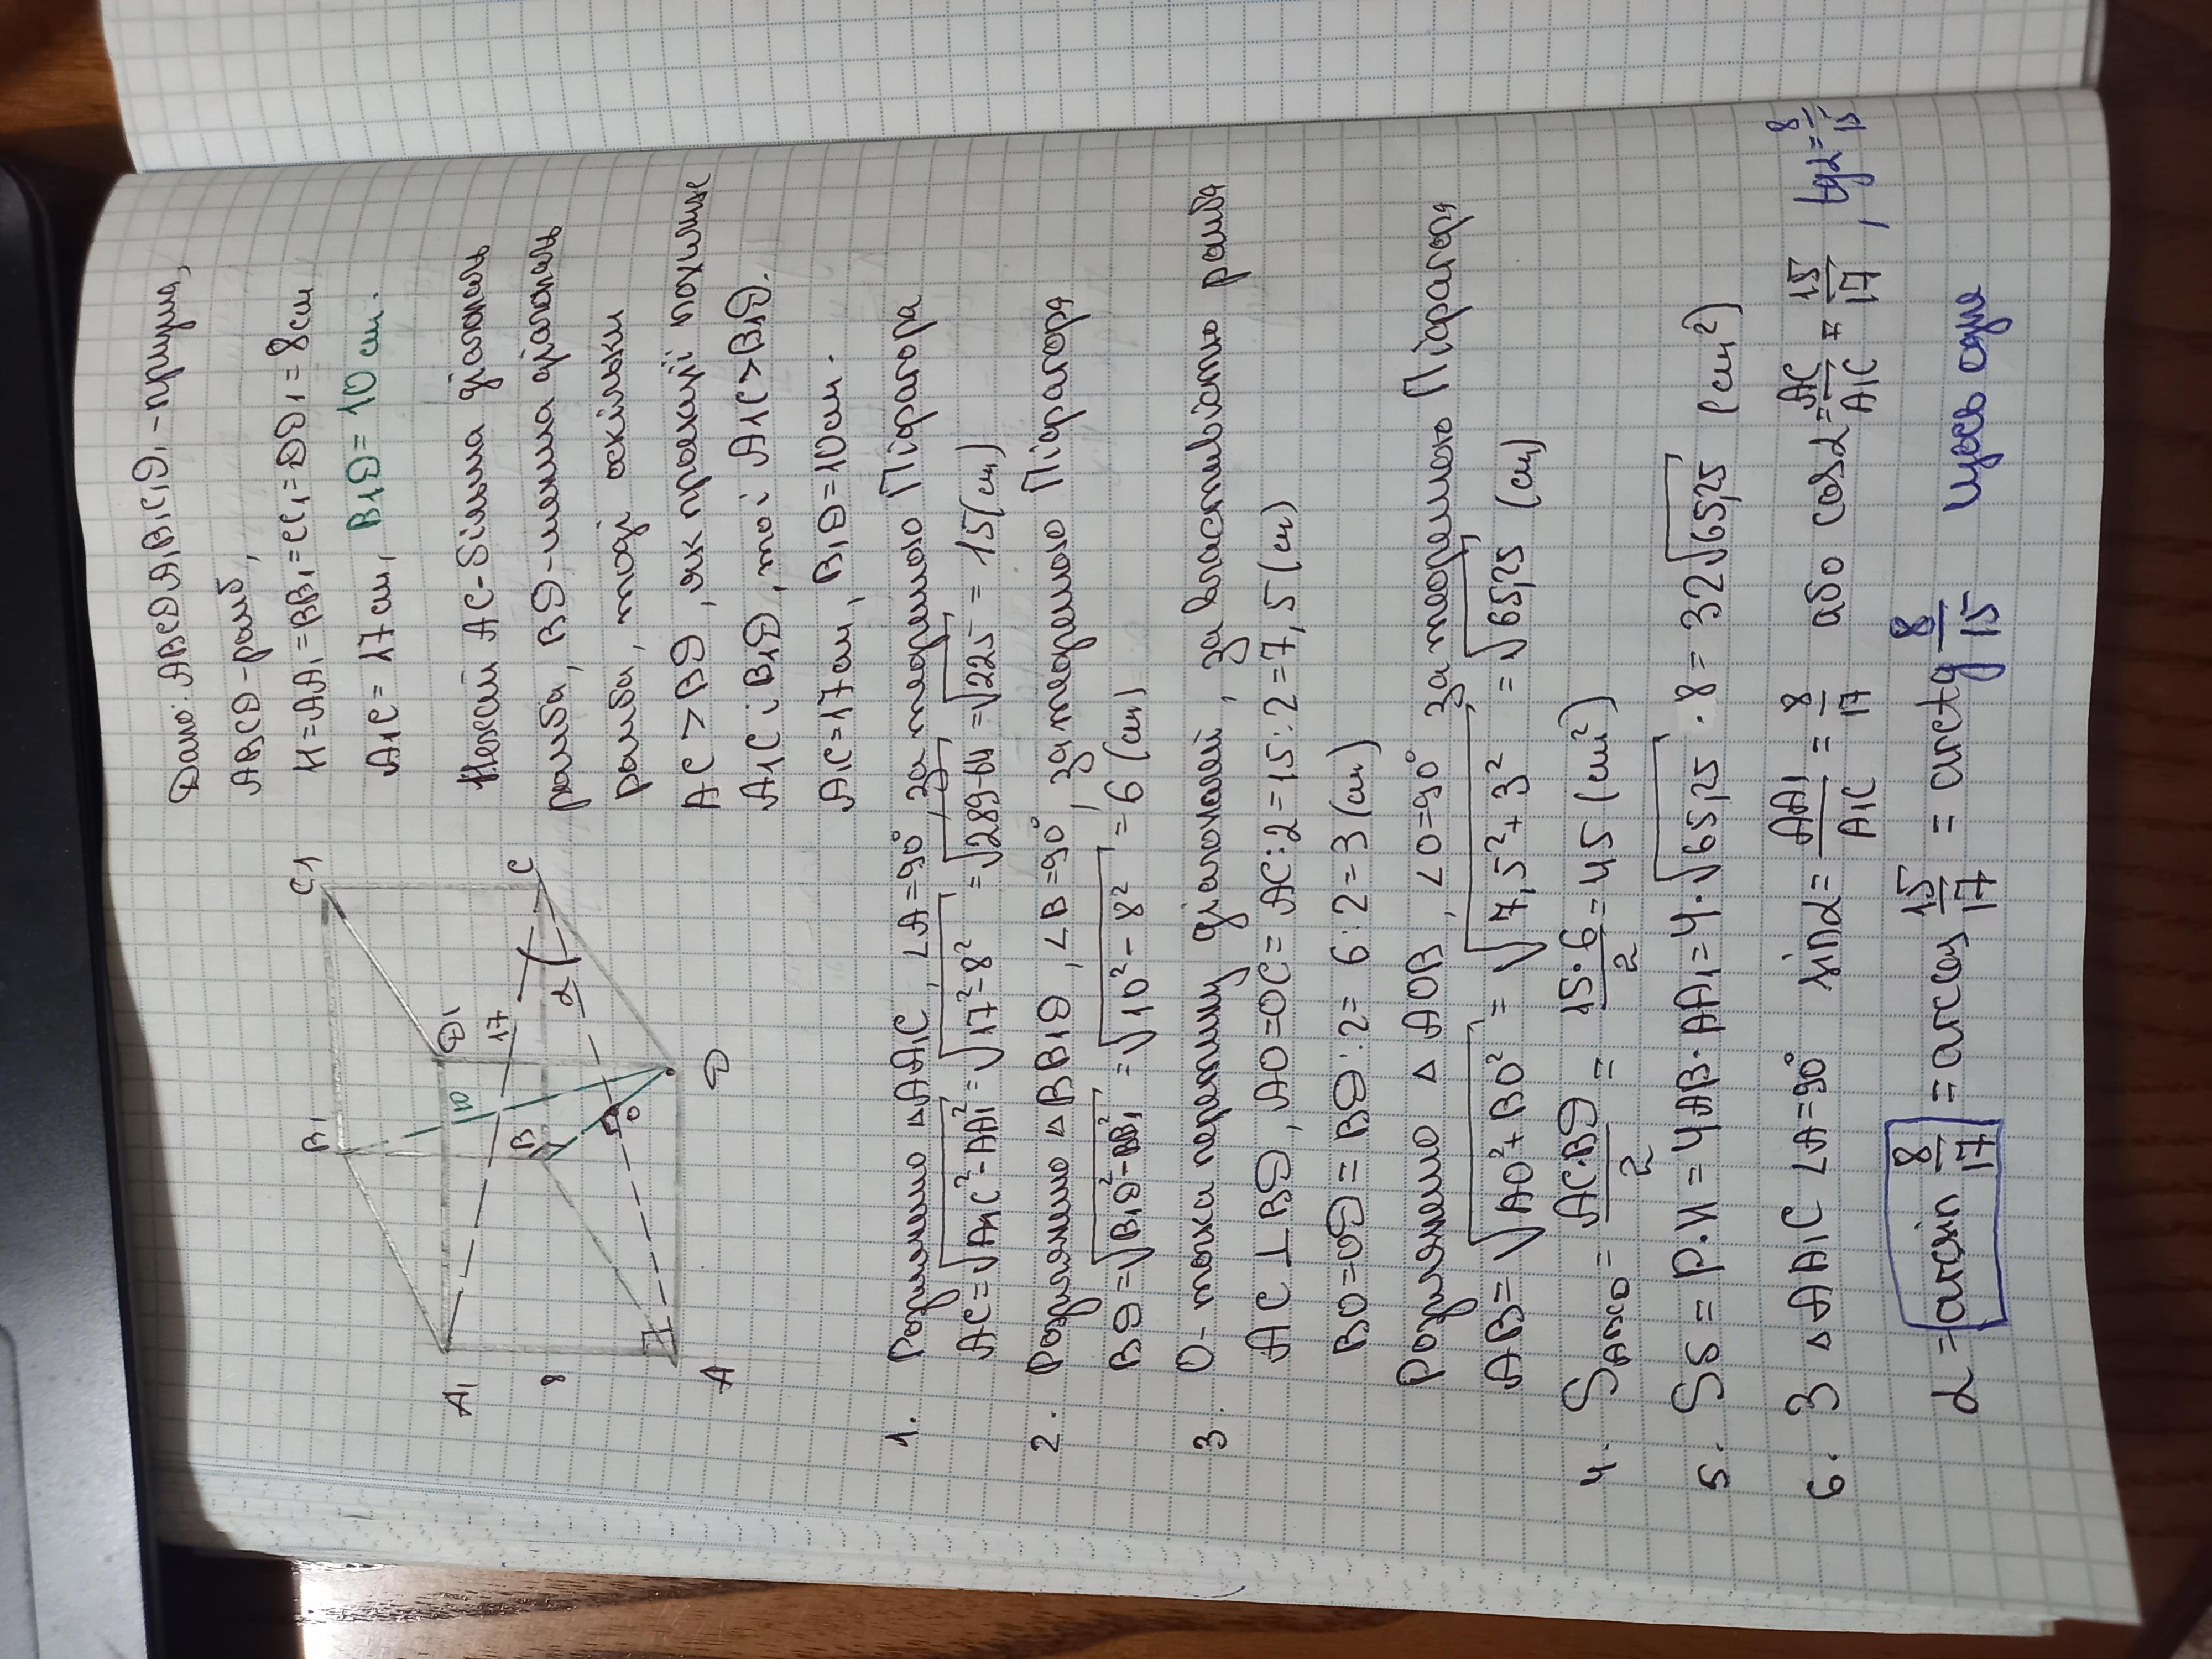 Дано: ABCDA1B1C1D1 - призма,
ABCD - ромб,
H = AA1 = BB1 = CC1 = DD1 = 8 см
A1C = 17 см, B1D = 10 см.
Нехай AC - більша діагональ
ромба, BD - менша діагональ
ромба, тоді оскільки
AC > BD, як проекції похилих
A1C і B1D, то і A1C > B1D.
A1C = 17 см, B1D = 10 см.
A1 B1 C1 D1
8 10 17 α
A B C D O
1. Розглянемо △AA1C, ∠A = 90° за теоремою Піфагора
AC = √(A1C² - AA1²) = √(17² - 8²) = √(289 - 64) = √225 = 15 (см)
2. Розглянемо △BB1D, ∠B = 90°, за теоремою Піфагора
BD = √(B1D² - BB1²) = √(10² - 8²) = 6 (см)
3. O - точка перетину діагоналей, за властивістю ромба
AC ⊥ BD, AO = OC = AC : 2 = 15 : 2 = 7,5 (см)
BO = OD = BD : 2 = 6 : 2 = 3 (см)
Розглянемо △AOB, ∠O = 90° за теоремою Піфагора
AB = √(AO² + BO²) = √(7,5² + 3²) = √65,25 (см)
4. Sосно = AC·BD/2 = 15·6/2 = 45 (см²)
5. Sб = P·H = 4AB·AA1 = 4·√65,25 · 8 = 32√65,25 (см²)
6. З △AA1C ∠A = 90° sinα = AA1/A1C = 8/17 або cosα = AC/A1C = 15/17, tgα = 8/15
α = arcsin 8/17 = arccos 15/17 = arctg 8/15 щось одне